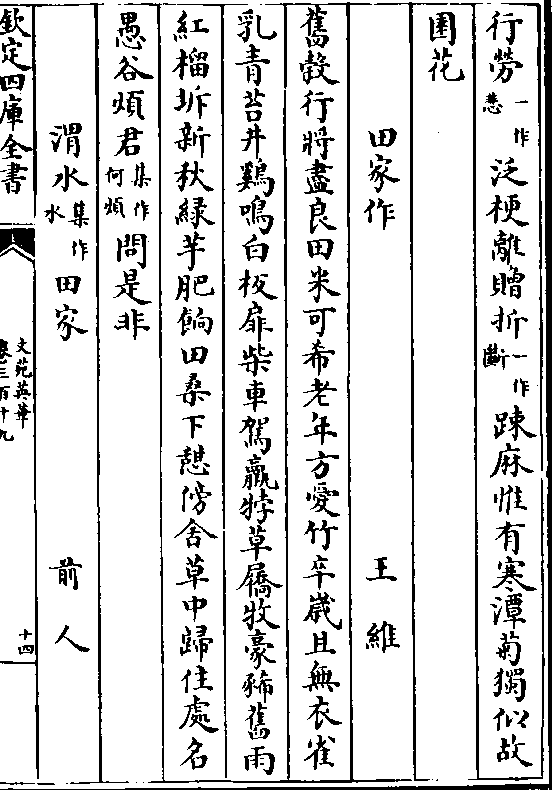 行勞一作悲泛梗離贈折一作斷踈麻惟有寒潭菊獨似故
園花
田家作 王維
舊穀行將盡良田米可希老年方愛竹卒歳且無衣雀
乳青苔井鷄鳴白板扉柴車駕羸牸草屩牧豪豨舊雨
紅榴坼新秋緑芋肥餉田桑下憇傍舍草中歸住處名
愚谷煩君集作何煩問是非
渭水集作水田家 前人
欽定四庫全書 文苑英華 卷三百十九 十四